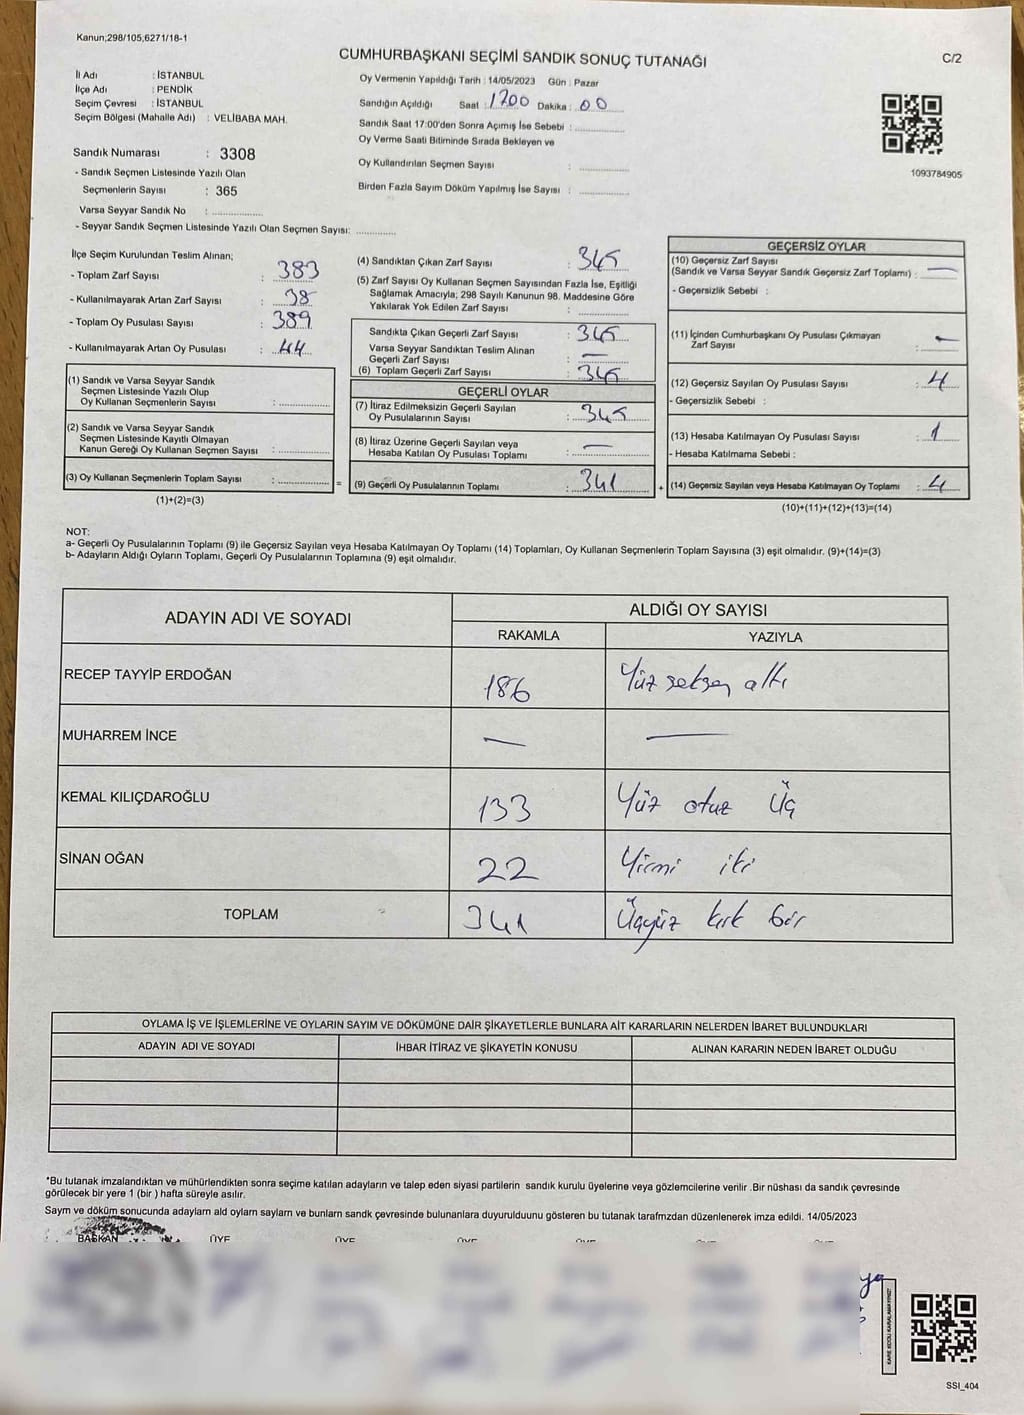 Kanun;298/105,6271/18-1
CUMHURBAŞKANI SEÇİMİ SANDIK SONUÇ TUTANAĞI
C/2
İl Adı : İSTANBUL
İlçe Adı : PENDİK
Seçim Çevresi : İSTANBUL
Seçim Bölgesi (Mahalle Adı) : VELİBABA MAH.
Sandık Numarası : 3308
- Sandık Seçmen Listesinde Yazılı Olan
Seçmenlerin Sayısı : 365
Varsa Seyyar Sandık No : ................
- Seyyar Sandık Seçmen Listesinde Yazılı Olan Seçmen Sayısı: ............
Oy Vermenin Yapıldığı Tarih : 14/05/2023 Gün : Pazar
Sandığın Açıldığı Saat : 1700 Dakika : 00
Sandık Saat 17:00'den Sonra Açımış İse Sebebi : ................
Oy Verme Saati Bitiminde Sırada Bekleyen ve
Oy Kullandırılan Seçmen Sayısı : ................
Birden Fazla Sayım Döküm Yapılmış İse Sayısı : ................
1093784905
İlçe Seçim Kurulundan Teslim Alınan;
- Toplam Zarf Sayısı : 383
- Kullanılmayarak Artan Zarf Sayısı : 38
- Toplam Oy Pusulası Sayısı : 389
- Kullanılmayarak Artan Oy Pusulası : 44
(1) Sandık ve Varsa Seyyar Sandık
Seçmen Listesinde Yazılı Olup
Oy Kullanan Seçmenlerin Sayısı : ................
(2) Sandık ve Varsa Seyyar Sandık
Seçmen Listesinde Kayıtlı Olmayan
Kanun Gereği Oy Kullanan Seçmen Sayısı : ................
(3) Oy Kullanan Seçmenlerin Toplam Sayısı : ................ =
(1)+(2)=(3)
(4) Sandıktan Çıkan Zarf Sayısı : 345
(5) Zarf Sayısı Oy Kullanan Seçmen Sayısından Fazla İse, Eşitliği
Sağlamak Amacıyla; 298 Sayılı Kanunun 98. Maddesine Göre
Yakılarak Yok Edilen Zarf Sayısı : ................
Sandıkta Çıkan Geçerli Zarf Sayısı : 345
Varsa Seyyar Sandıktan Teslim Alınan
Geçerli Zarf Sayısı : —
(6) Toplam Geçerli Zarf Sayısı : 345
GEÇERLİ OYLAR
(7) İtiraz Edilmeksizin Geçerli Sayılan
Oy Pusulalarının Sayısı : 345
(8) İtiraz Üzerine Geçerli Sayılan veya
Hesaba Katılan Oy Pusulası Toplamı : —
(9) Geçerli Oy Pusulalarının Toplamı : 341 +
GEÇERSİZ OYLAR
(10) Geçersiz Zarf Sayısı
(Sandık ve Varsa Seyyar Sandık Geçersiz Zarf Toplamı) : —
- Geçersizlik Sebebi :
(11) İçinden Cumhurbaşkanı Oy Pusulası Çıkmayan
Zarf Sayısı : —
(12) Geçersiz Sayılan Oy Pusulası Sayısı : 4
- Geçersizlik Sebebi :
(13) Hesaba Katılmayan Oy Pusulası Sayısı : 1
- Hesaba Katılmama Sebebi :
(14) Geçersiz Sayılan veya Hesaba Katılmayan Oy Toplamı : 4
(10)+(11)+(12)+(13)=(14)
NOT:
a- Geçerli Oy Pusulalarının Toplamı (9) ile Geçersiz Sayılan veya Hesaba Katılmayan Oy Toplamı (14) Toplamları, Oy Kullanan Seçmenlerin Toplam Sayısına (3) eşit olmalıdır. (9)+(14)=(3)
b- Adayların Aldığı Oyların Toplamı, Geçerli Oy Pusulalarının Toplamına (9) eşit olmalıdır.
ADAYIN ADI VE SOYADI
ALDIĞI OY SAYISI
RAKAMLA YAZIYLA
RECEP TAYYİP ERDOĞAN 186 Yüz seksen altı
MUHARREM İNCE — —
KEMAL KILIÇDAROĞLU 133 Yüz otuz Üç
SİNAN OĞAN 22 Yirmi iki
TOPLAM 341 Üçyüz kırk bir
OYLAMA İŞ VE İŞLEMLERİNE VE OYLARIN SAYIM VE DÖKÜMÜNE DAİR ŞİKAYETLERLE BUNLARA AİT KARARLARIN NELERDEN İBARET BULUNDUKLARI
ADAYIN ADI VE SOYADI İHBAR İTİRAZ VE ŞİKAYETİN KONUSU ALINAN KARARIN NEDEN İBARET OLDUĞU
*Bu tutanak imzalandıktan ve mühürlendikten sonra seçime katılan adayların ve talep eden siyasi partilerin sandık kurulu üyelerine veya gözlemcilerine verilir .Bir nüshası da sandık çevresinde
görülecek bir yere 1 (bir ) hafta süreyle asılır.
Saym ve döküm sonucunda adaylarn ald oylarn saylarn ve bunlarn sandk çevresinde bulunanlara duyurulduunu gösteren bu tutanak tarafmzdan düzenlenerek imza edildi. 14/05/2023
BAŞKAN ÜYE ÜYE ÜYE ÜYE ÜYE ÜYE
KARE KODU KARALAMAYINIZ!
SSI_404